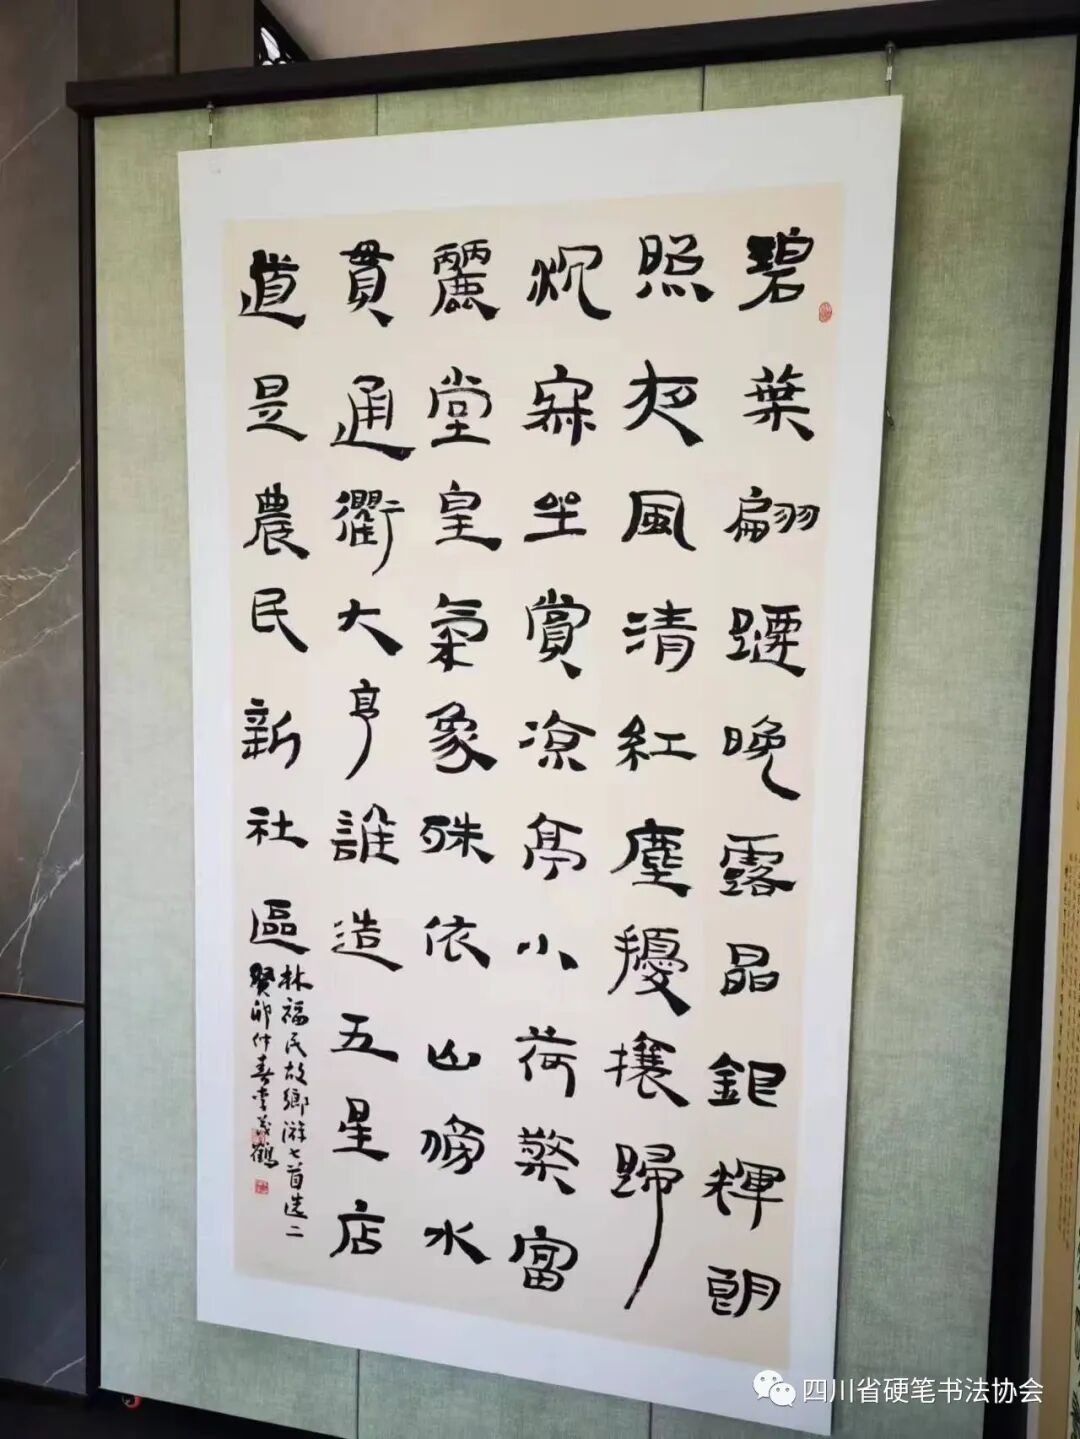 碧葉翩躚晚露晶鉅輝朗
照夜風清紅塵擾攘歸
沉寂坐賞涼亭小荷擎富
麗堂皇氣象殊依山傍水
貫通衢大亨誰造五星店
道是農民新社區
林福民故鄉游七首選二
癸卯仲春李茂鶴
四川省硬笔书法协会